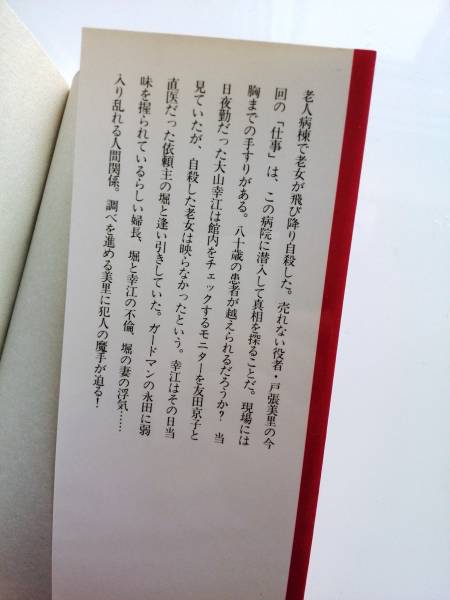 老人病棟で老女が飛び降り自殺した。売れない役者・戸張美里の今
回の「仕事」は、この病院に潜入して真相を探ることだ。現場には
胸までの手すりがある。八十歳の患者が越えられるだろうか？　当
日夜勤だった大山幸江は館内をチェックするモニターを友田京子と
見ていたが、自殺した老女は映らなかったという。幸江はその日当
直医だった依頼主の堀と逢い引きしていた。ガードマンの永田に弱
味を握られているらしい婦長、堀と幸江の不倫、堀の妻の浮気……
入り乱れる人間関係。調べを進める美里に犯人の魔手が迫る！